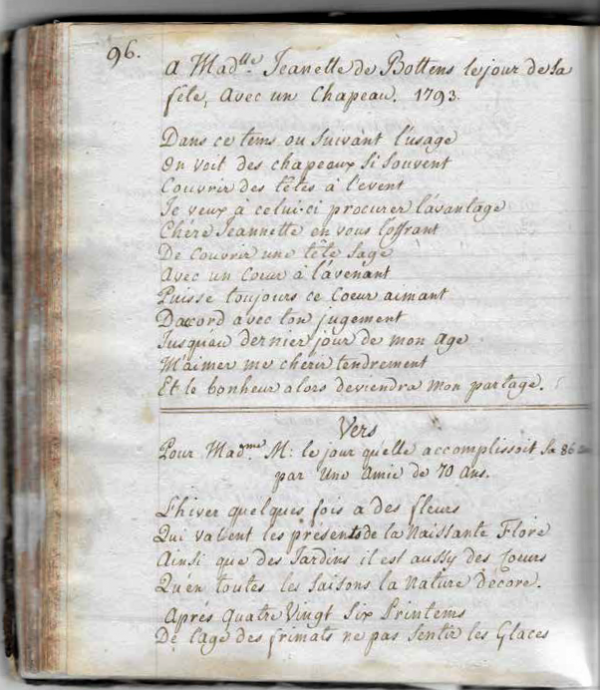 96.
A Mad.lle Jeanette de Bottens le jour de sa
fête, Avec un Chapeau. 1793.
Dans ce tems ou suivant l'usage
On voit des chapeaux si souvent
Couvrir des têtes à l'event
Je veux à celui-ci procurer l'avantage
Chére Jeannette en vous l'offrant
De couvrir une tête sage
Avec un Coeur à l'avenant
Puisse toujours ce Coeur aimant
Daccord avec ton jugement
Jusqu'au dernier jour de mon Age
M'aimer me chérir tendrement
Et le bonheur alors deviendra mon partage.
Vers
Pour Mad.me M: le jour qu'elle accomplissoit sa 86
par Une Amie de 70 ans.
L'hiver quelques fois a des fleurs
Qui valent les présents de la Naissante Flore
Ainsi que des Jardins il est aussy des Coeurs
Qu'en toutes les saisons la Nature décore.
Aprés Quatre Vingt Six Printems
De l'age des frimats ne pas sentir les Glaces